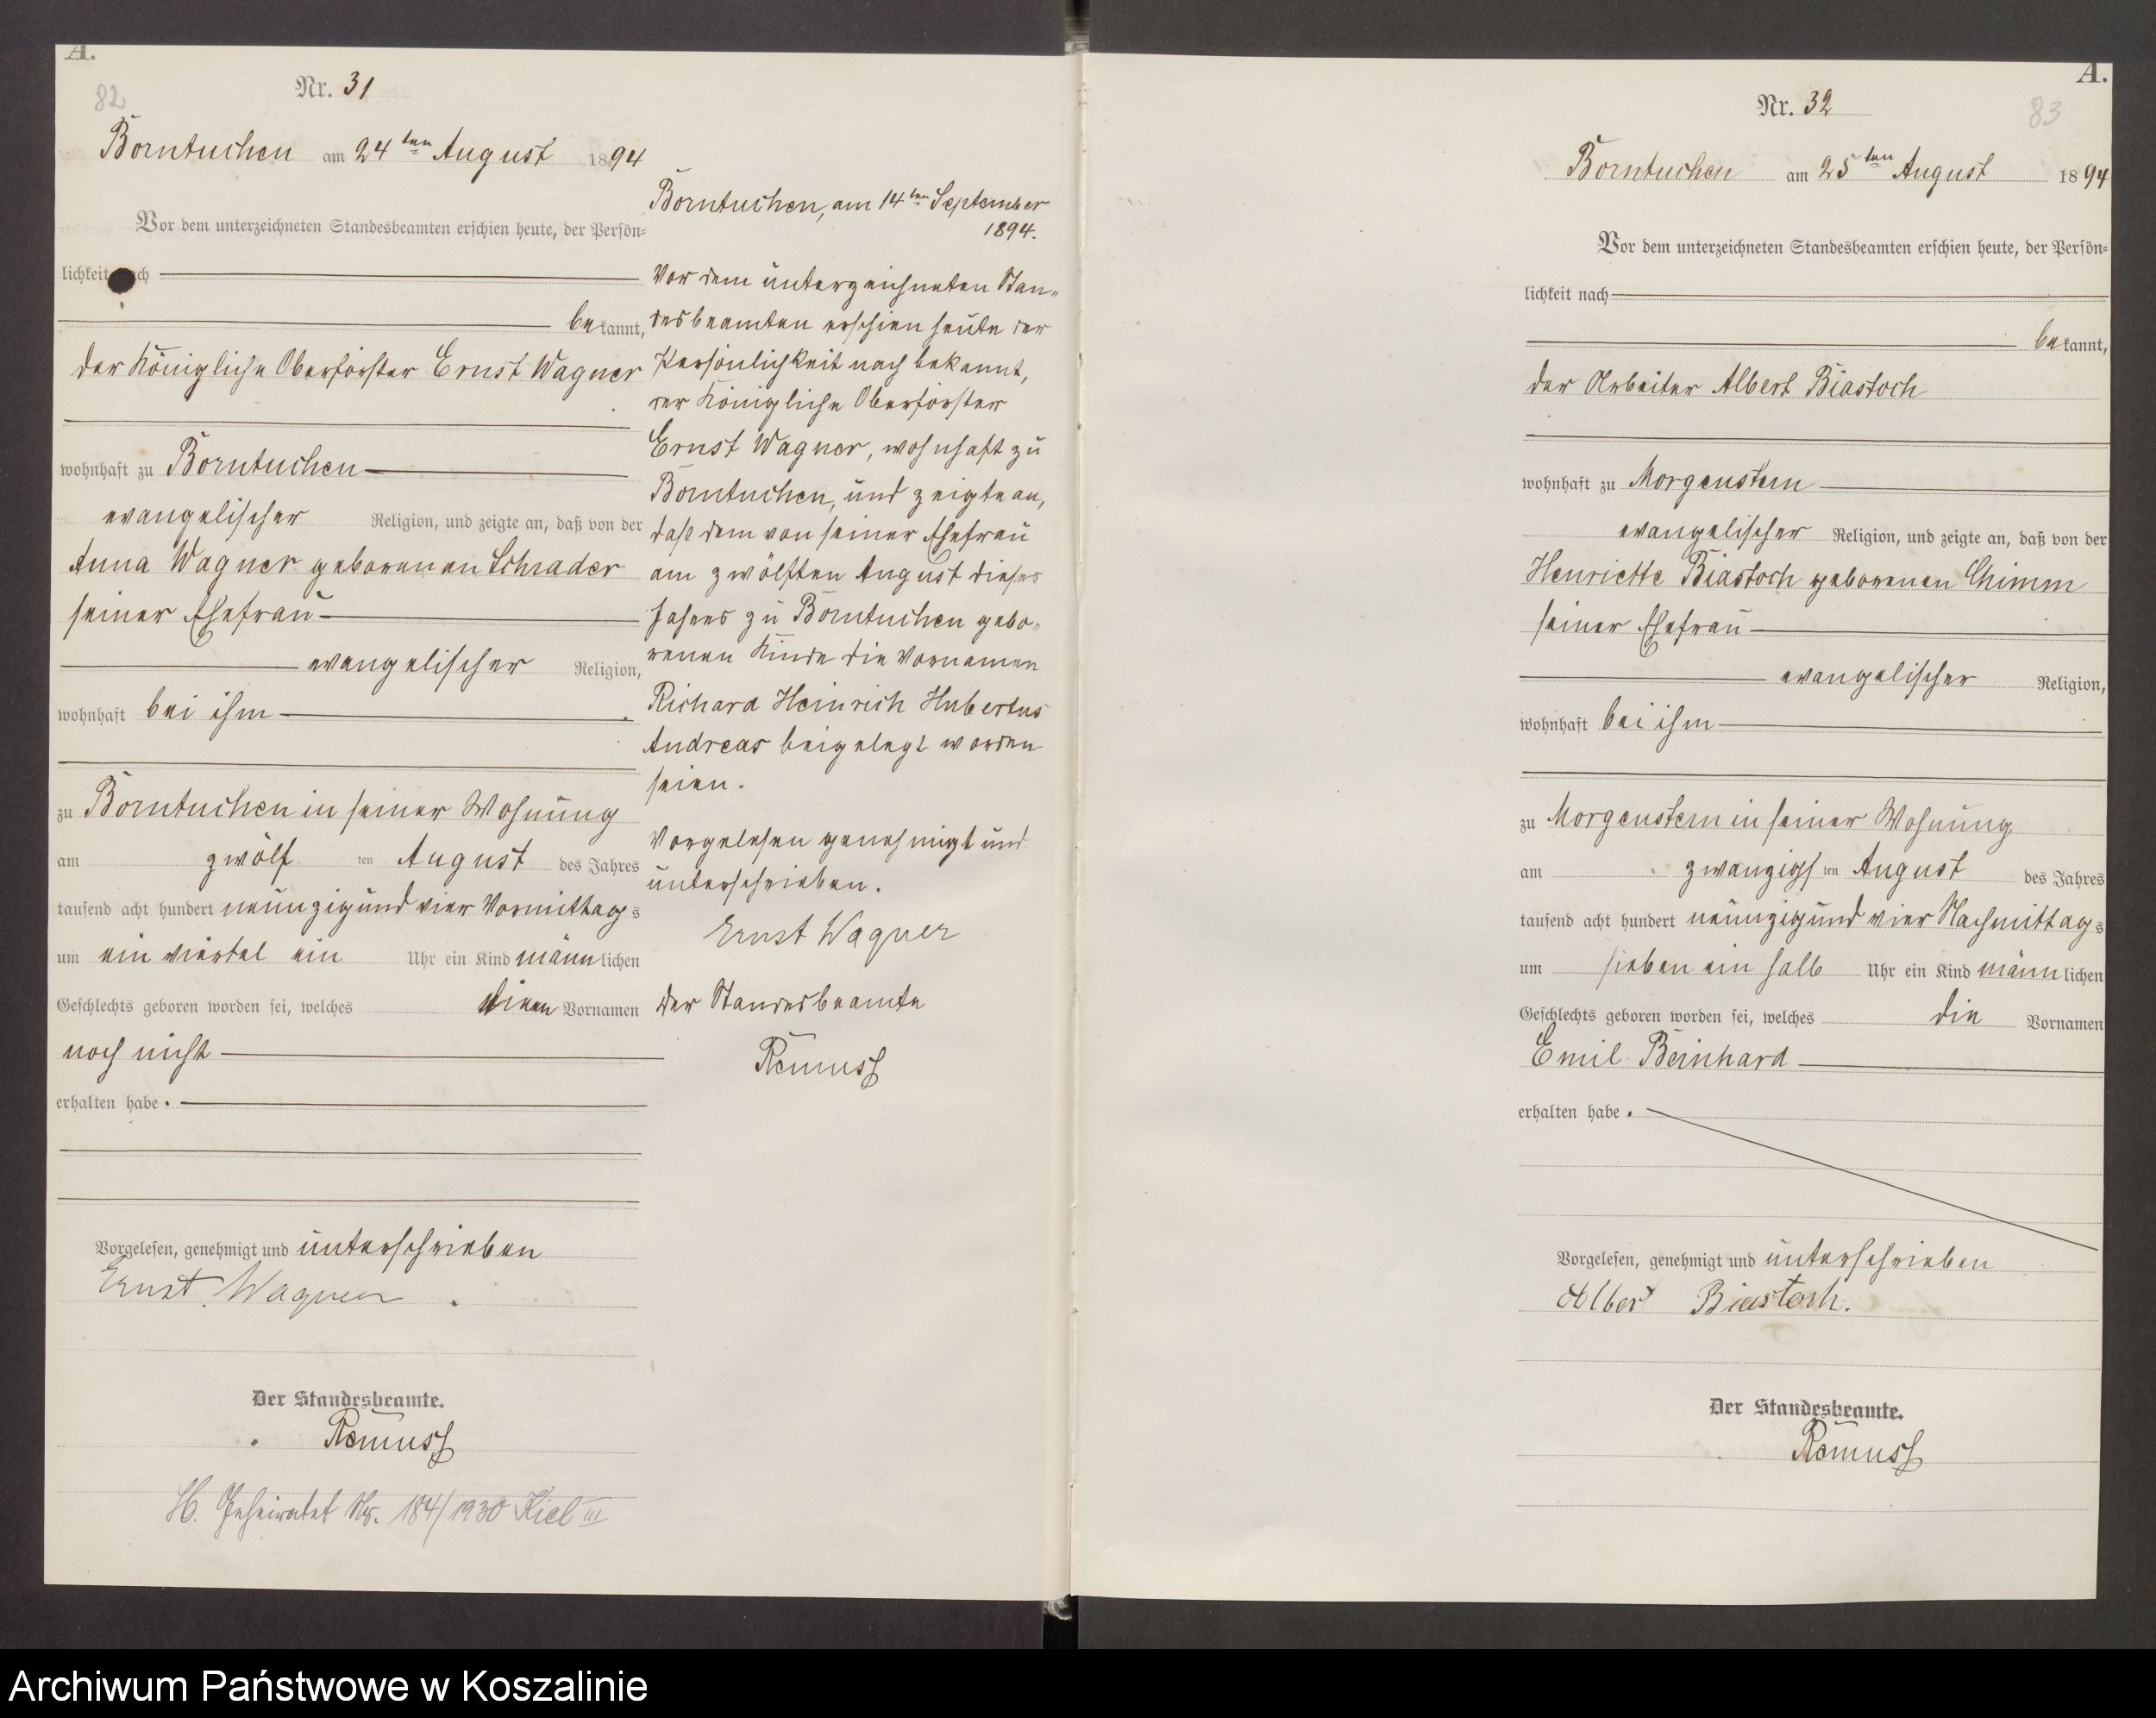 A.
82
Nr. 31
Borntuchen am 24ten August 1894
Vor dem unterzeichneten Standesbeamten erschien heute, der Persön=
lichkeit nach
bekannt,
der Königliche Oberförster Ernst Wagner
wohnhaft zu Borntuchen
evangelischer Religion, und zeigte an, daß von der
Anna Wagner geborenen Schrader
seiner Ehefrau
evangelischer Religion,
wohnhaft bei ihm
zu Borntuchen in seiner Wohnung
am zwölf ten August des Jahres
tausend acht hundert neunzig und vier Vormittags
um ein viertel ein Uhr ein Kind männlichen
Geschlechts geboren worden sei, welches Vornamen
noch nicht
erhalten habe.
Vorgelesen, genehmigt und unterschrieben
Ernst Wagner
Der Standesbeamte.
Remuss
H. Geheiratet Nr. 184/1930 Kiel III
Borntuchen, am 14ten September
1894.
Vor dem unterzeichneten Stan=
desbeamten erschien heute der
Persönlichkeit nach bekannt,
der Königliche Oberförster
Ernst Wagner, wohnhaft zu
Borntuchen, und zeigte an,
daß dem von seiner Ehefrau
am zwölften August dieses
Jahres zu Borntuchen gebo=
renen Kinde die Vornamen
Richard Heinrich Hubertus
Andreas beigelegt worden
seien.
Vorgelesen genehmigt und
unterschrieben.
Ernst Wagner
Der Standesbeamte
Remuss
A.
83
Nr. 32
Borntuchen am 25ten August 1894
Vor dem unterzeichneten Standesbeamten erschien heute, der Persön=
lichkeit nach
bekannt,
der Arbeiter Albert Biastoch
wohnhaft zu Morgenstern
evangelischer Religion, und zeigte an, daß von der
Henriette Biastoch geborenen Chimm
seiner Ehefrau
evangelischer Religion,
wohnhaft bei ihm
zu Morgenstern in seiner Wohnung
am zwanzigs ten August des Jahres
tausend acht hundert neunzig und vier Nachmittags
um sieben ein halb Uhr ein Kind männlichen
Geschlechts geboren worden sei, welches die Vornamen
Emil Beinhard
erhalten habe.
Vorgelesen, genehmigt und unterschrieben
Albert Biastoch.
Der Standesbeamte.
Remuss
Archiwum Państwowe w Koszalinie